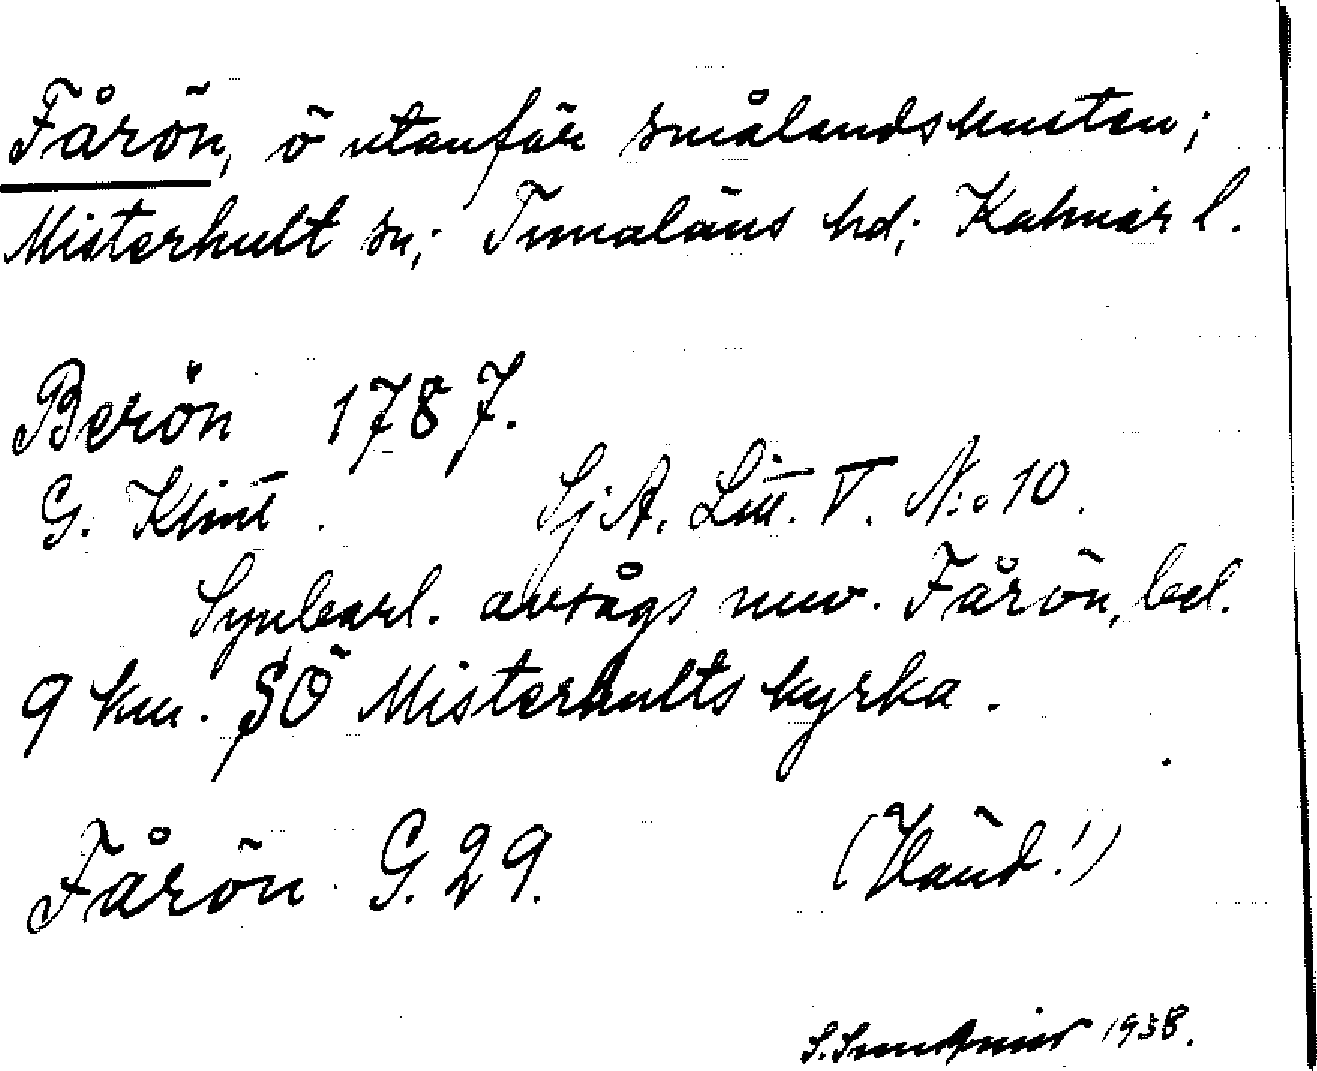 Fårön, ö utanför smålandskusten;
Misterhult sn; Tunaläns hd; Kalmar l.
Berön 1787.
G. Klint. Sj. A. Litt. V. N:o 10.
Synbarl. avsågs nuv. Fårön, bel.
9 km. SÖ Misterhults kyrka.
Fårön G. 29. (Vänd!)
S. 1938.